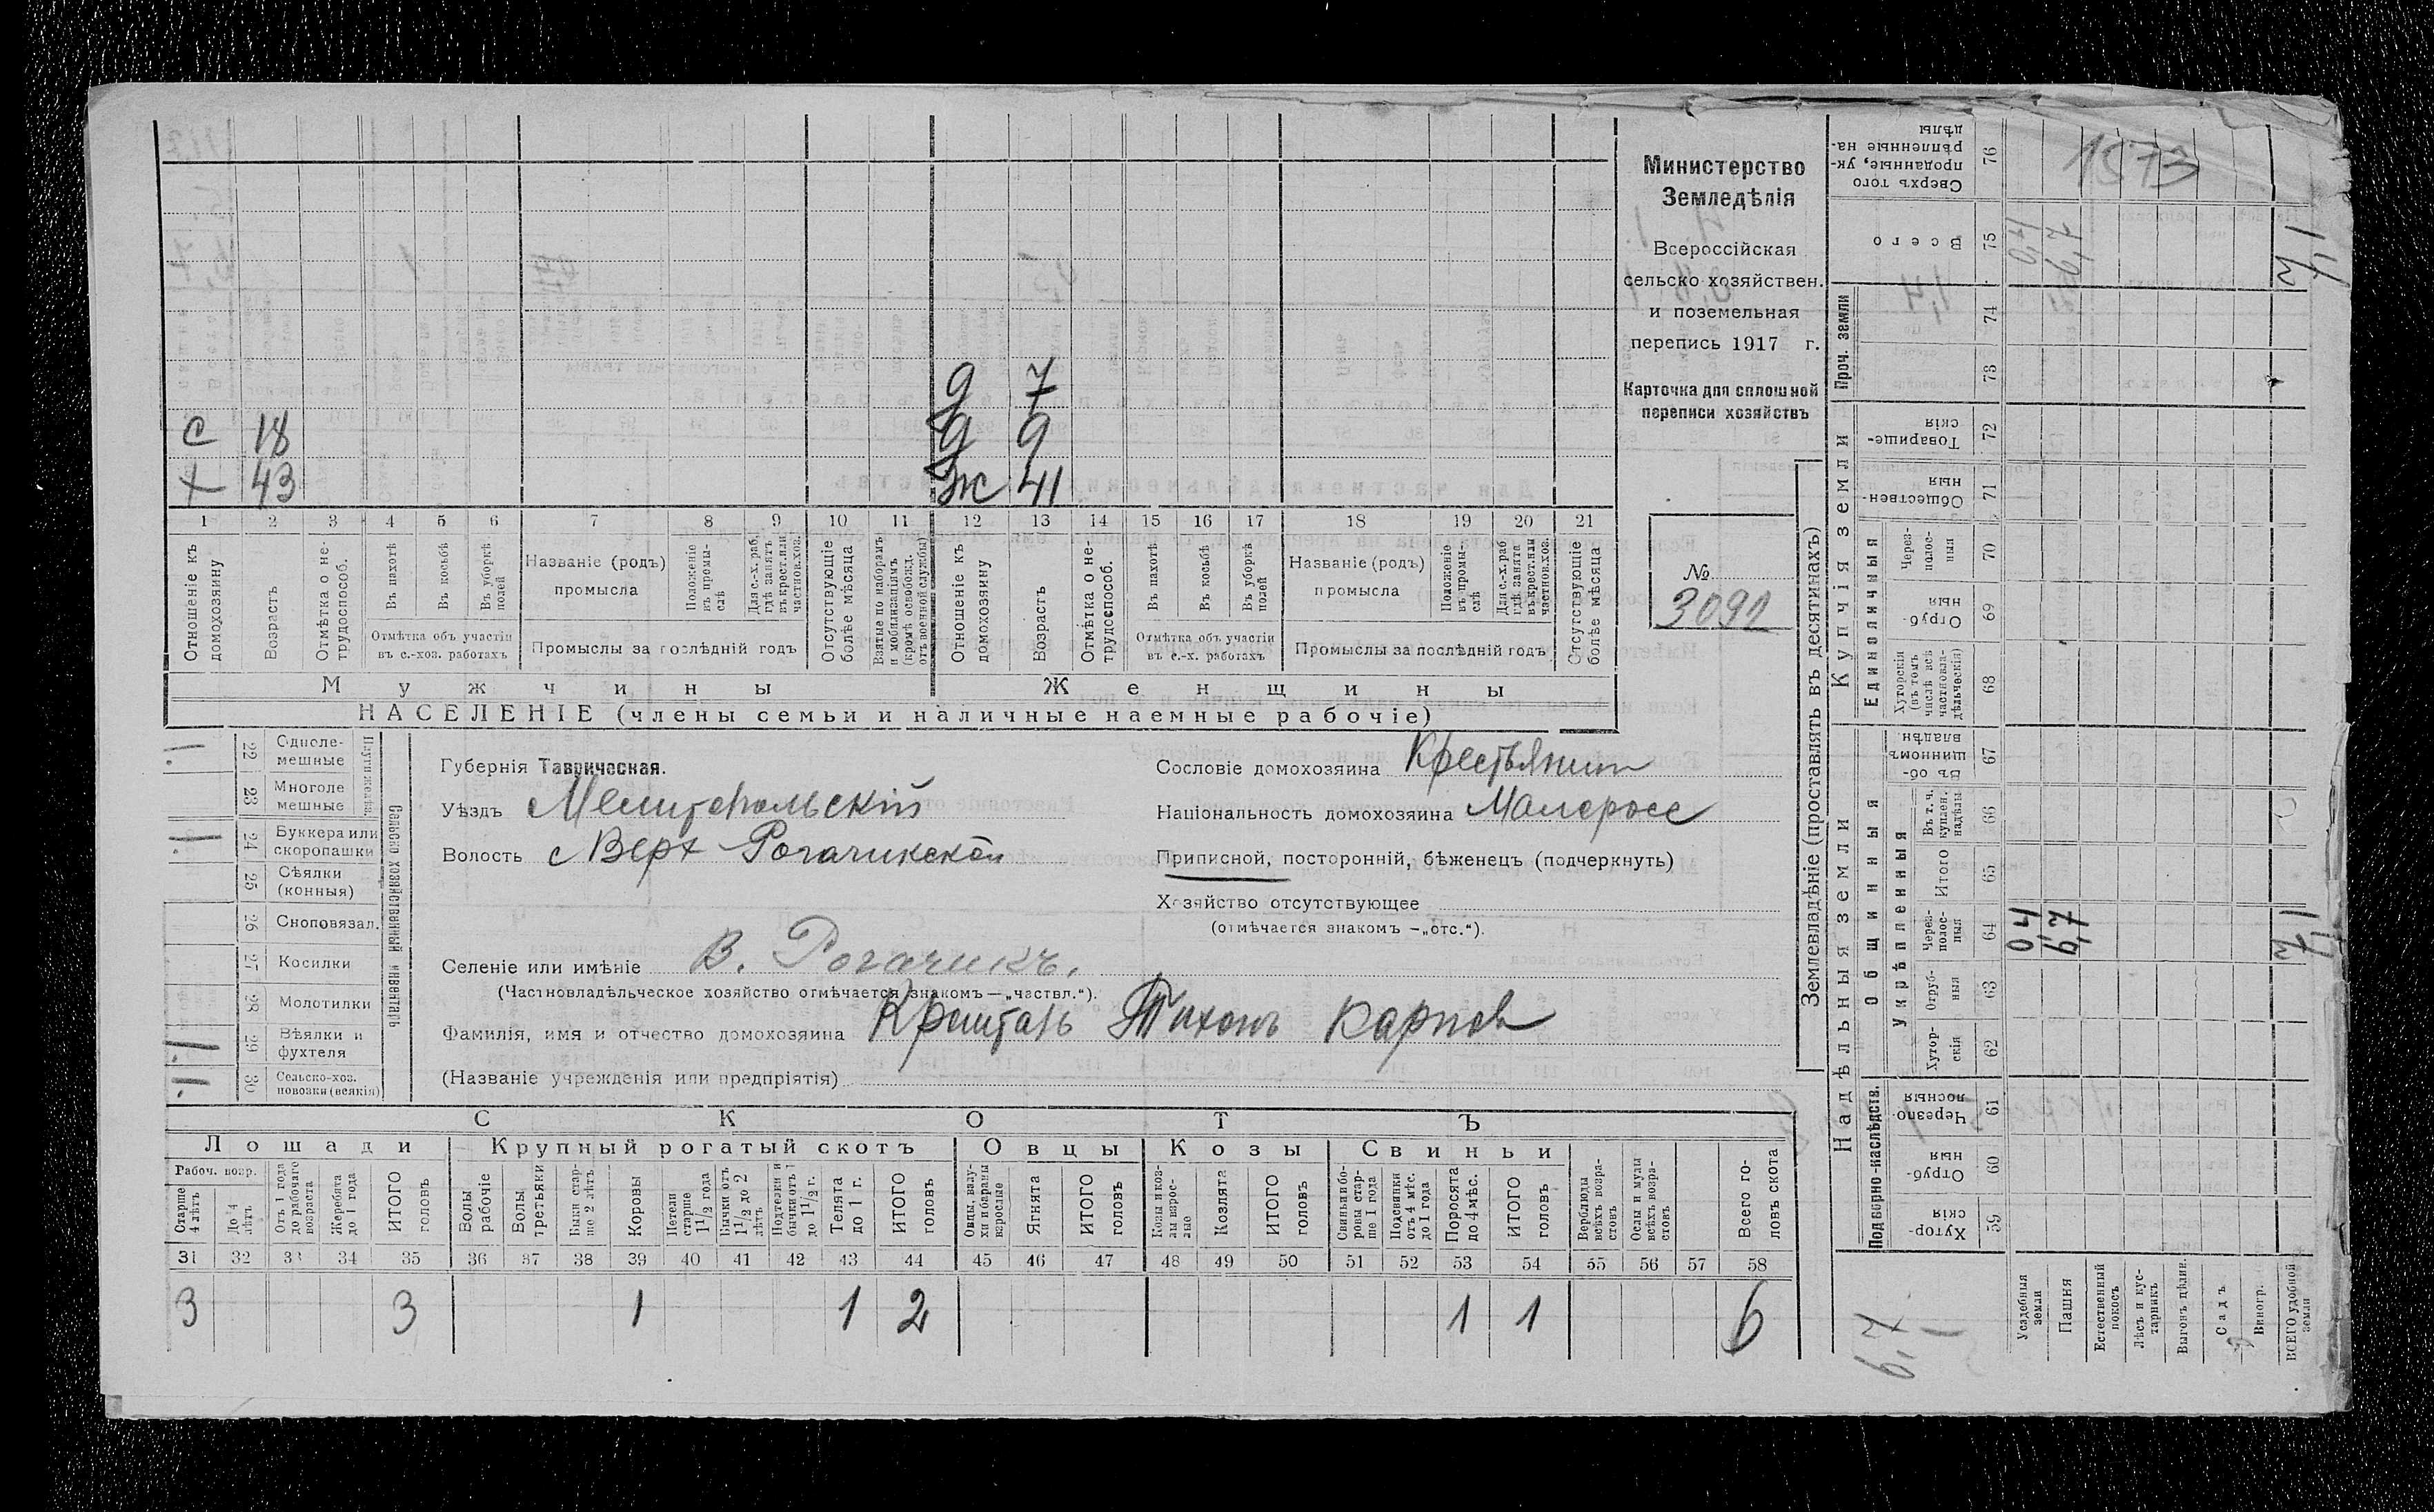 Министерство
Земледѣлія
Всероссійская
сельско хозяйствен.
и поземельная
перепись 1917 г.
Карточка для сплошной
переписи хозяйствъ
№
3092
д 7
с 18 д 9
х 43 ж 41
1 2 3 4 5 6 7 8 9 10 11 12 13 14 15 16 17 18 19 20 21
Отношеніе къ домохозяину
Возрастъ
Отмѣтка о не-трудоспособ.
Въ пахотѣ
Въ косьбѣ
Въ уборкѣ полей
Отмѣтка объ участіи въ с.-хоз. работахъ
Названіе (родъ) промысла
Положеніе въ промы-слѣ
Для с.-х. раб. гдѣ занятъ въ крест. или частнов. хоз.
Промыслы за послѣдній годъ
Отсутствующіе болѣе мѣсяца
Взятые по наборамъ и мобилизаціямъ (кромѣ освобожд. отъ военной службы)
Отношеніе къ домохозяину
Возрастъ
Отмѣтка о не-трудоспособ.
Въ пахотѣ
Въ косьбѣ
Въ уборкѣ полей
Отмѣтка объ участіи въ с.-х. работахъ
Названіе (родъ) промысла
Положеніе въ промы-слѣ
Для с.-х. раб гдѣ занята въ крест. или частнов. хоз.
Промыслы за послѣдній годъ
Отсутствующіе болѣе мѣсяца
Мужчины Женщины
НАСЕЛЕНІЕ (члены семьи и наличные наемные рабочіе)
Сельско хозяйственный инвентарь
22 Одноле-мешные
23 Многоле мешные
1 24 Буккера или скоропашки
25 Сѣялки (конныя)
26 Сноповязал.
27 Косилки
28 Молотилки
1 29 Вѣялки и фухтеля
1 30 Сельско-хоз. повозки (всякія)
Губернія Таврическая.
Уѣздъ Мелитопольскій
Волость с Верх Рогачикской
Селеніе или имѣніе В. Рогачикъ.
(Частновладѣльческое хозяйство отмѣчается знакомъ — „частвл.“).
Фамилія, имя и отчество домохозяина Тихонъ Карпов
(Названіе учрежденія или предпріятія)
Сословіе домохозяина Крестьянин
Національность домохозяина Малоросс
Приписной, посторонній, бѣженецъ (подчеркнуть)
Хозяйство отсутствующее
(отмѣчается знакомъ —„отс.“).
СКОТЪ
Лошади Крупный рогатый скотъ Овцы Козы Свиньи
Рабоч. возр.
Старше 4 лѣтъ
До 4 лѣтъ
Отъ 1 года до рабочаго возраста
Жеребята до 1 года
ИТОГО головъ
Волы рабочіе
Волы третьяки
Быки стар-ше 2 лѣтъ
Коровы
Нетели старше 1 1/2 года
Бычки отъ 1 1/2 до 2 лѣтъ
Подтелки и бычки отъ 1 до 1 1/2 г.
Телята до 1 г.
ИТОГО головъ
Овцы, валу-хи и бараны взрослые
Ягнята
ИТОГО головъ
Козы и коз-лы взрос-лые
Козлята
ИТОГО головъ
Свиньи и бо-ровы стар-ше 1 года
Подсвинки отъ 4 мѣс. до 1 года
Поросята до 4 мѣс.
ИТОГО головъ
Верблюды всѣхъ возра-стовъ
Ослы и мулы всѣхъ возра-стовъ
Всего го-ловъ скота
31 32 33 34 35 36 37 38 39 40 41 42 43 44 45 46 47 48 49 50 51 52 53 54 55 56 57 58
3 3 1 1 2 1 1 6
Землевладѣніе (проставлять въ десятинахъ)
Надѣльныя земли
Купчія земли
Проч. земли
Подворно-наслѣдств.
Общинныя
Укрѣпленныя
Единоличныя
Хутор-скія 59
Отруб-ныя 60
Черезпо-лосныя 61
Хутор-скія 62
Отруб-ныя 63
Через-полос-ныя 64
Итого 65
Въ т. ч. куплен. надѣлы 66
Въ об-щинномъ владѣн. 67
Хуторскія (въ томъ числѣ всѣ частновла-дѣльческія) 68
Отруб-ныя 69
Через-полос-ныя 70
Обществен-ныя 71
Товарище-скія 72
73
74
Всего 75
Сверхъ того проданные, ук-рѣпленные на-дѣлы 76
1573
Усадебныя земли 04
Пашня 6,7
Естественный покосъ
Лѣсъ и кус-тарникъ
Выгонъ цѣлин.
Садъ
Виногр.
ВСЕГО удобной земли 7,1
7,1
6,7